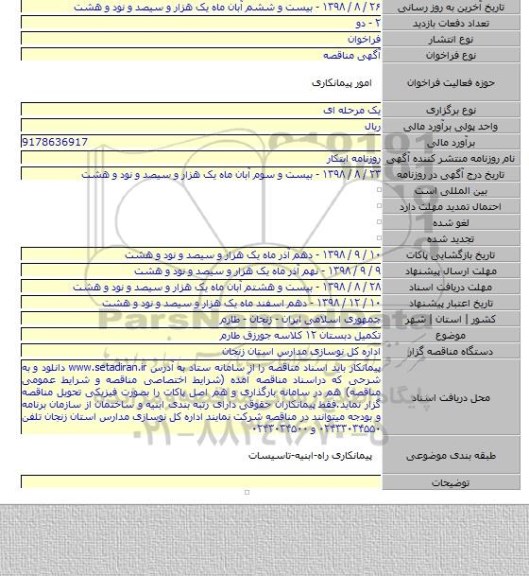 تاریخ آخرین به روز رسانی ۲۶ / ۸ / ۱۳۹۸ - بیست و ششم آبان ماه یک هزار و سیصد و نود و هشت
تعداد دفعات بازدید ۲ - دو
نوع انتشار فراخوان
نوع فراخوان آگهی مناقصه
حوزه فعالیت فراخوان امور پیمانکاری
نوع برگزاری یک مرحله ای
واحد پولی برآورد مالی ریال
برآورد مالی 9178636917
نام روزنامه منتشر کننده آگهی روزنامه ابتکار
تاریخ درج آگهی در روزنامه ۲۳ / ۸ / ۱۳۹۸ - بیست و سوم آبان ماه یک هزار و سیصد و نود و هشت
بین المللی است
احتمال تمدید مهلت دارد
لغو شده
تجدید شده
تاریخ بازگشایی پاکات ۱۰ / ۹ / ۱۳۹۸ - دهم آذر ماه یک هزار و سیصد و نود و هشت
مهلت ارسال پیشنهاد ۹ / ۹ / ۱۳۹۸ - نهم آذر ماه یک هزار و سیصد و نود و هشت
مهلت دریافت اسناد ۲۸ / ۸ / ۱۳۹۸ - بیست و هشتم آبان ماه یک هزار و سیصد و نود و هشت
تاریخ اعتبار پیشنهاد ۱۰ / ۱۲ / ۱۳۹۸ - دهم اسفند ماه یک هزار و سیصد و نود و هشت
کشور | استان | شهر جمهوری اسلامی ایران - زنجان - طارم
موضوع تکمیل دبستان ۱۲ کلاسه جورزق طارم
دستگاه مناقصه گزار اداره کل نوسازی مدارس استان زنجان
محل دریافت اسناد پیمانکار باید اسناد مناقصه را از سامانه ستاد به آدرس www.setadiran.ir دانلود و به
شرحی که دراسناد مناقصه آمده (شرایط اختصاصی مناقصه و شرایط عمومی
مناقصه) هم در سامانه بارگذاری و هم اصل پاکات را بصورت فیزیکی تحویل مناقصه
گزار نماید.فقط پیمانکاران حقوقی دارای رتبه بندی ابنیه و ساختمان از سازمان برنامه
و بودجه میتوانند در مناقصه شرکت نمایند اداره کل نوسازی مدارس استان زنجان تلفن
۰۲۴۳۳۰۳۴۵۵۰ و
طبقه بندی موضوعی پیمانکاری راه-ابنیه-تاسیسات
توضیحات